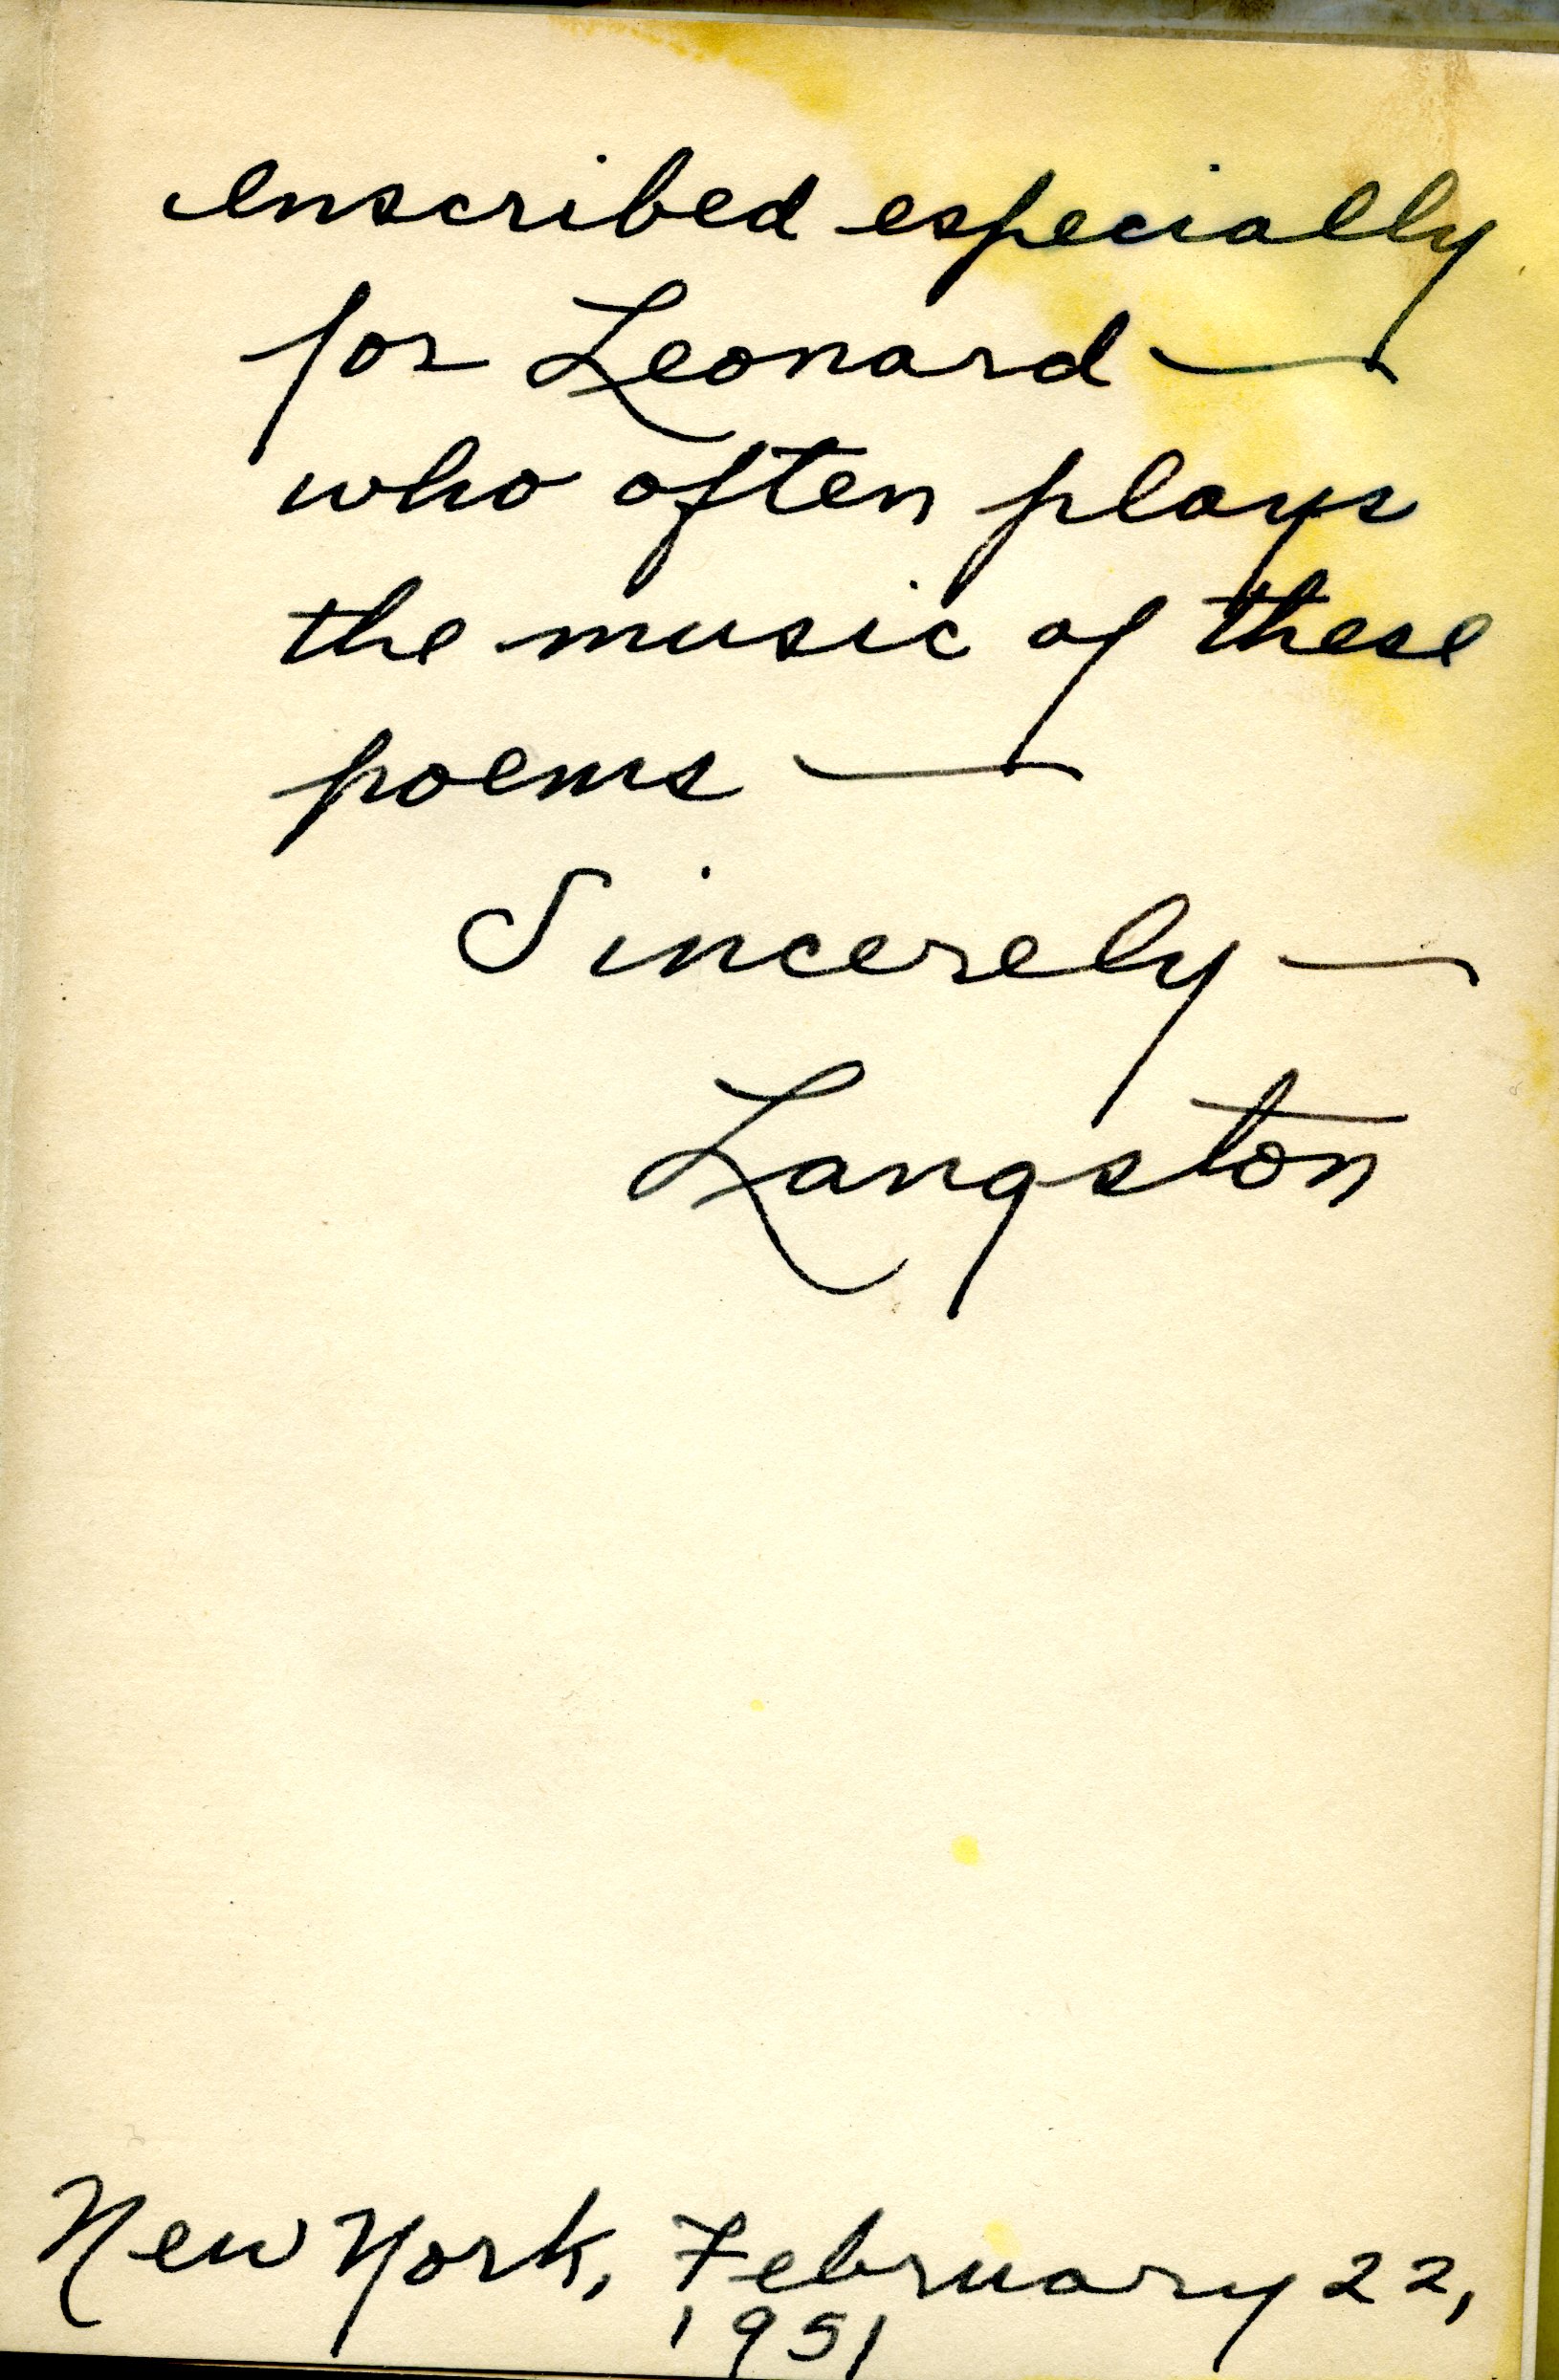 Inscribed especially
for Leonard —
who often plays
the music of these
poems —
Sincerely —
Langston
New York, February 22,
1951